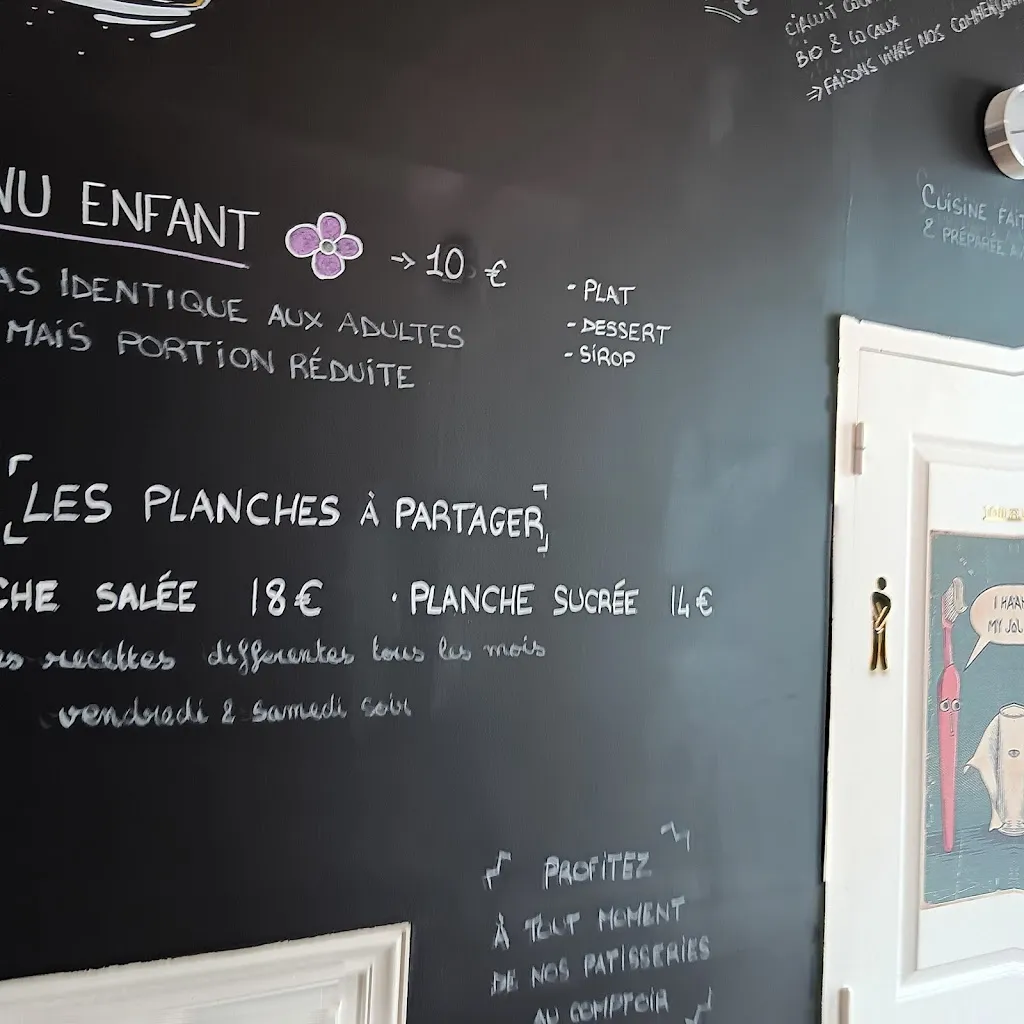 CIRCUIT
BIO & LOCAUX
⇒ FAISONS VIVRE NOS
CUISINE FAIT
& PRÉPARÉE
NU ENFANT → 10 €
AS IDENTIQUE AUX ADULTES
MAIS PORTION RÉDUITE
- PLAT
- DESSERT
- SIROP
LES PLANCHES À PARTAGER
CHE SALÉE 18€ · PLANCHE SUCRÉE 14€
es recettes differentes tous les mois
vendredi & samedi soir
MY JOB
PROFITEZ
À TOUT MOMENT
DE NOS PATISSERIES
AU COMPTOIR